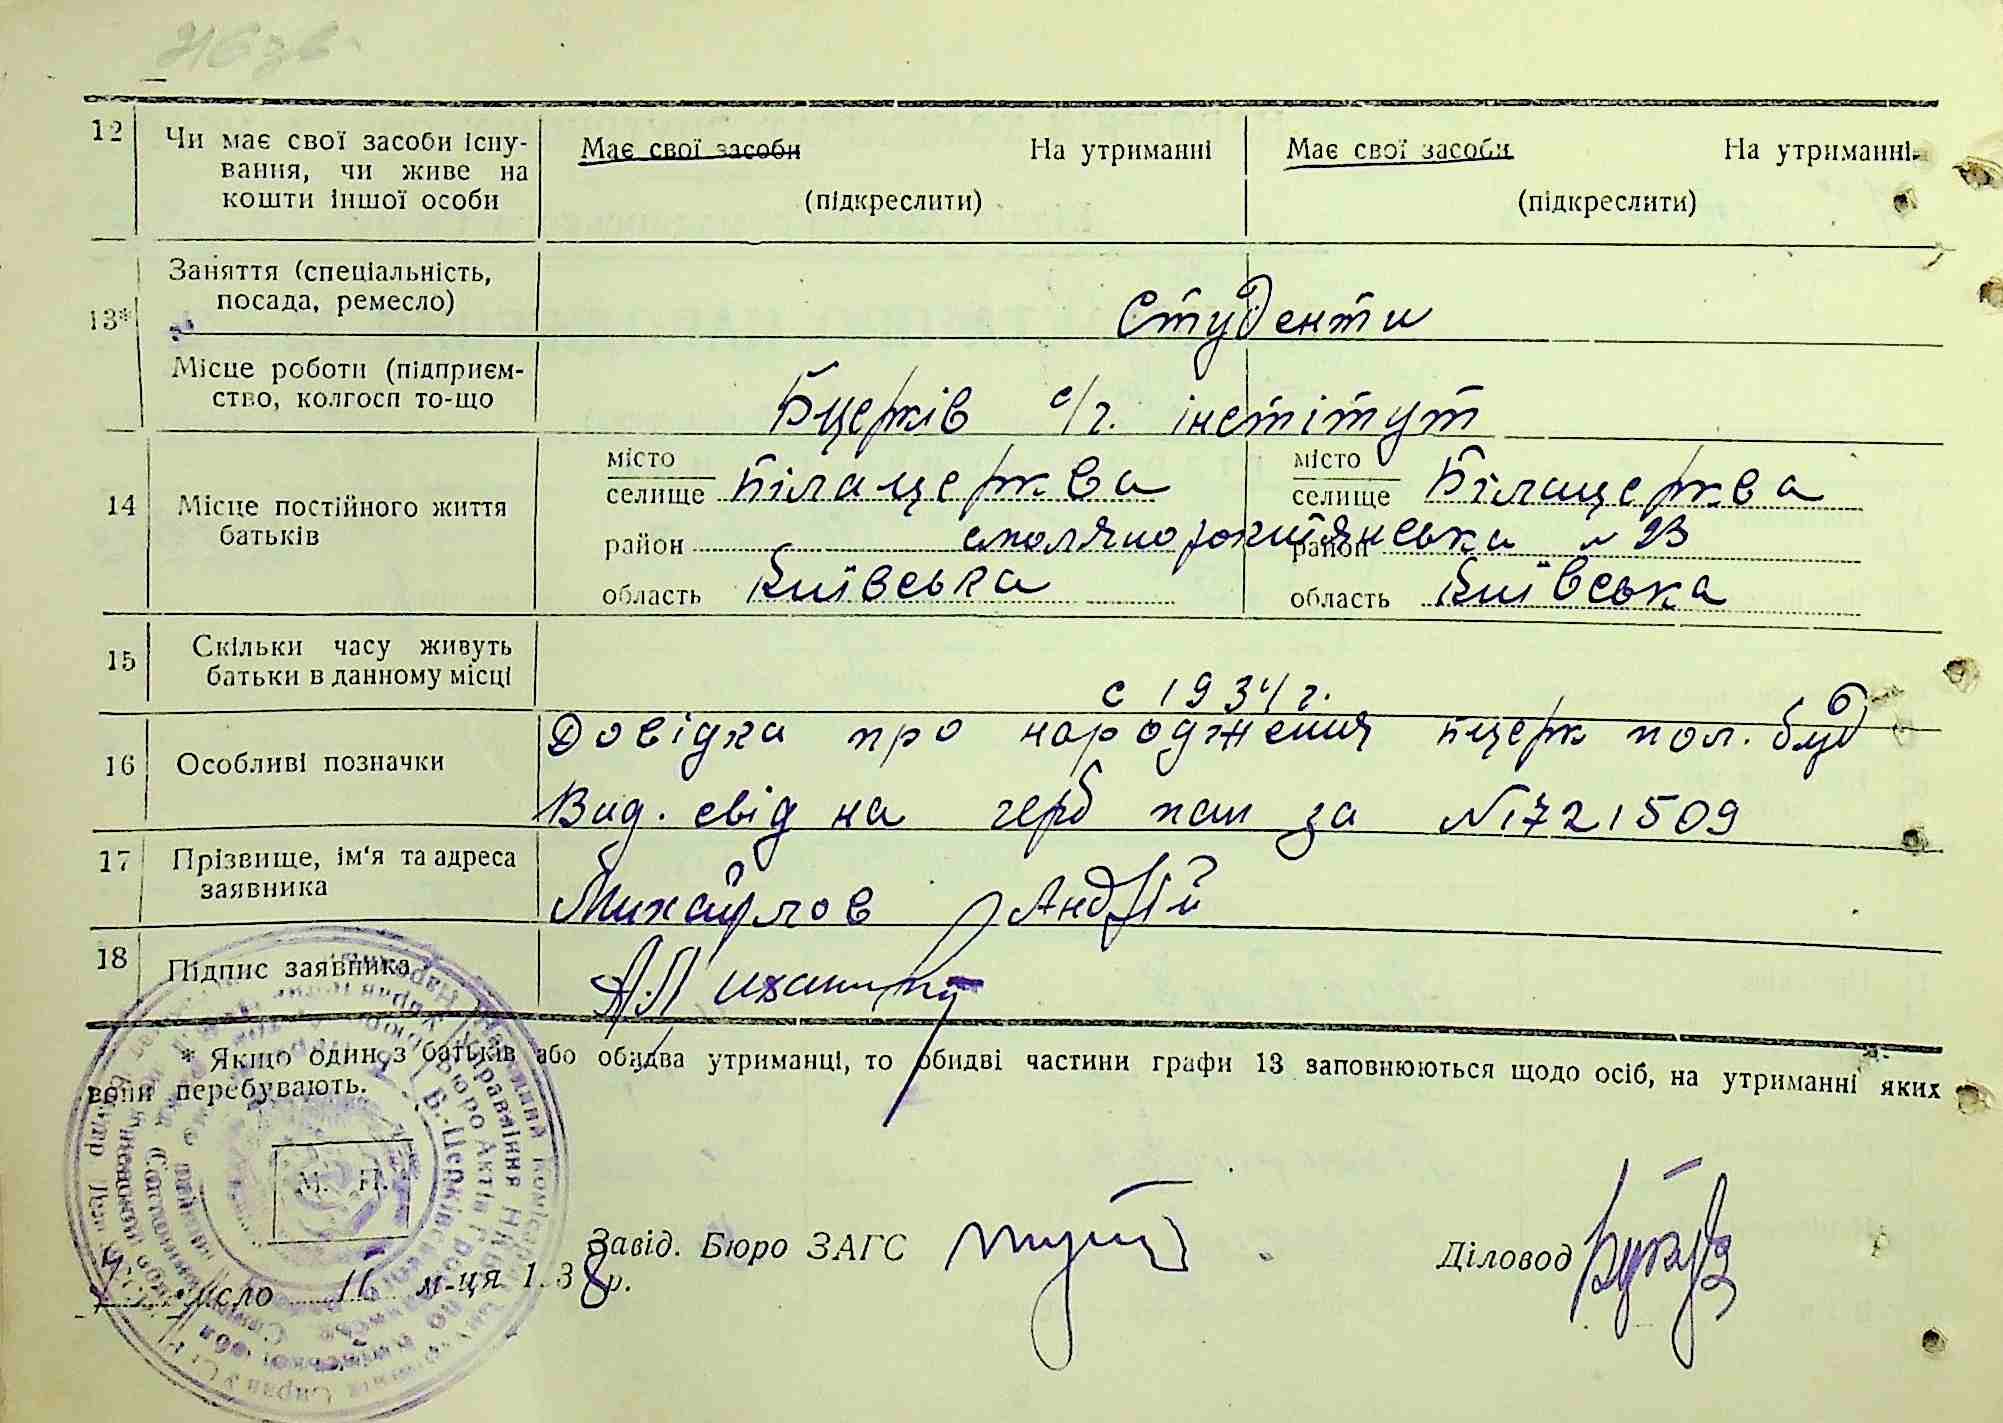 12 Чи має свої засоби існу- Має свої засоби На утриманні Має свої засоби На утриманні
вання, чи живе на
кошти іншої особи (підкреслити) (підкреслити)
Заняття (спеціальність,
посада, ремесло) Студенти
13*
Місце роботи (підприєм-
ство, колгосп то-що Бцерків с/г. інстітут
місто місто
селище Білацерква селище Білацерква
14 Місце постійного життя
батьків
район район № 23
область Київська область Київська
15 Скільки часу живуть
батьки в данному місці с 1934 г.
Довідка про народження бцерк пол. буд
16 Особливі позначки
Вид. свід на герб пап за №1721509
17 Прізвище, ім'я та адреса
заявника Михайлов Андрій
18 Підпис заявника
* Якщо один з батьків або обидва утриманці, то обидві частини графи 13 заповнюються щодо осіб, на утриманні яких
вони перебувають.
М. П.
Завід. Бюро ЗАГС Діловод
число 11 м-ця 1938 р.